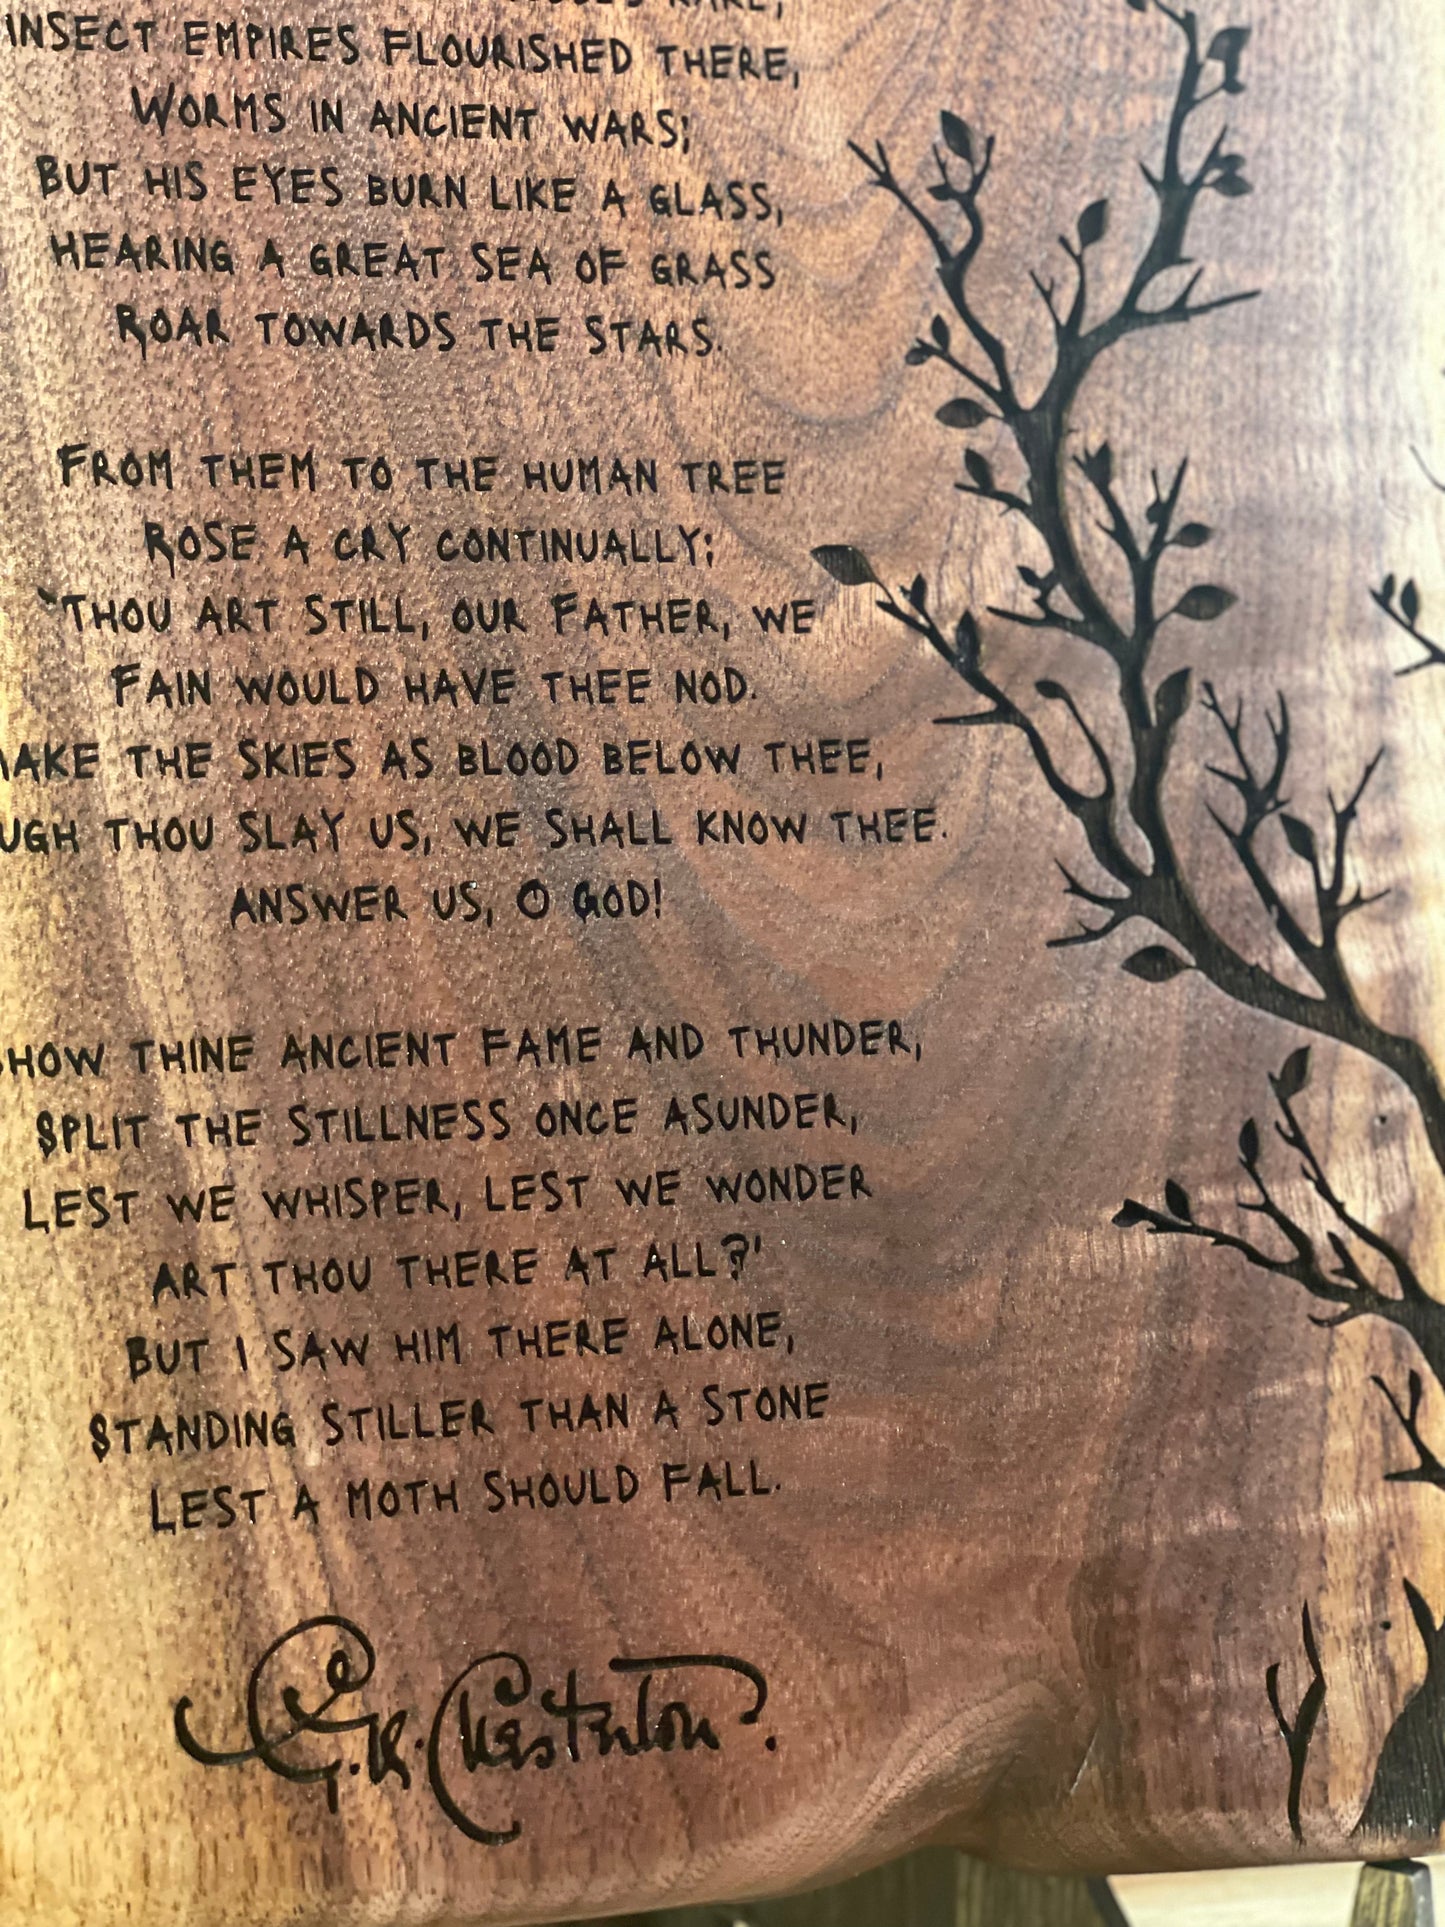 INSECT EMPIRES FLOURISHED THERE,
WORMS IN ANCIENT WARS;
BUT HIS EYES BURN LIKE A GLASS,
HEARING A GREAT SEA OF GRASS
ROAR TOWARDS THE STARS.
FROM THEM TO THE HUMAN TREE
ROSE A CRY CONTINUALLY;
‵THOU ART STILL, OUR FATHER, WE
FAIN WOULD HAVE THEE NOD.
MAKE THE SKIES AS BLOOD BELOW THEE,
UGH THOU SLAY US, WE SHALL KNOW THEE.
ANSWER US, O GOD!
SHOW THINE ANCIENT FAME AND THUNDER,
SPLIT THE STILLNESS ONCE ASUNDER,
LEST WE WHISPER, LEST WE WONDER
ART THOU THERE AT ALL?'
BUT I SAW HIM THERE ALONE,
STANDING STILLER THAN A STONE
LEST A MOTH SHOULD FALL.
G.K. Chesterton.